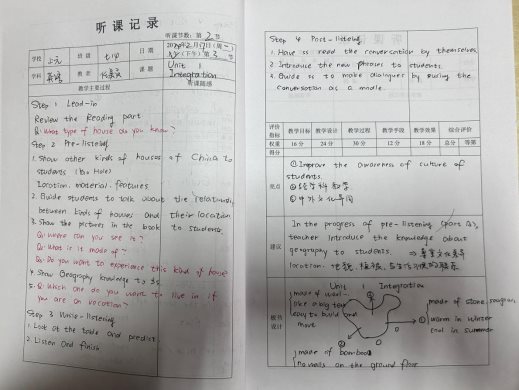 听课记录
听课节数：第 2 节
学校
班级 七19
日期
学科 英语
教者
课题 Unit 1
Integration
教学主要过程
听课随感
Step 1 Lead-in
Review the Reading part
Q: What type of house do you know?
Step 2 Pre-listening
1. Show other kinds of houses of China to
students
Location. material. features
2. Guide students to talk about the relationship
between kinds of houses and their location
3. Show the pictures in the book to students
Q1: Where can you see it?
Q2: What is it made of?
Q3: Do you want to experience this kind of house
4. Show Geography knowledge to Ss
5. Q: Which one do you want to live in if
you are on vacation?
Step 3 While-listening
1. Look at the table and predict
2. Listen and finish
Step 4 Post-listening
1. Have Ss read the conversation by themselves
2. Introduce the new phrases to students
3. Guide Ss to make dialogues by using the
conversation as a model.
评价指标 教学目标 教学设计 教学过程 教学手段 教学效果 综合评价
权重 16分 24分 30分 12分 18分 总分 等第
得分
亮点
① Improve the awareness of culture of
students.
② 跨学科教学
③ 中外文化异同
建议
In the progress of pre-listening (part A),
teacher introduce the knowledge about
geography to students.
location.
板书设计
Unit 1 Integration
made of wool
like a big tent
easy to build and
move
made of stone,
warm in winter
cool in summer
made of bamboo
no walls on the ground floor